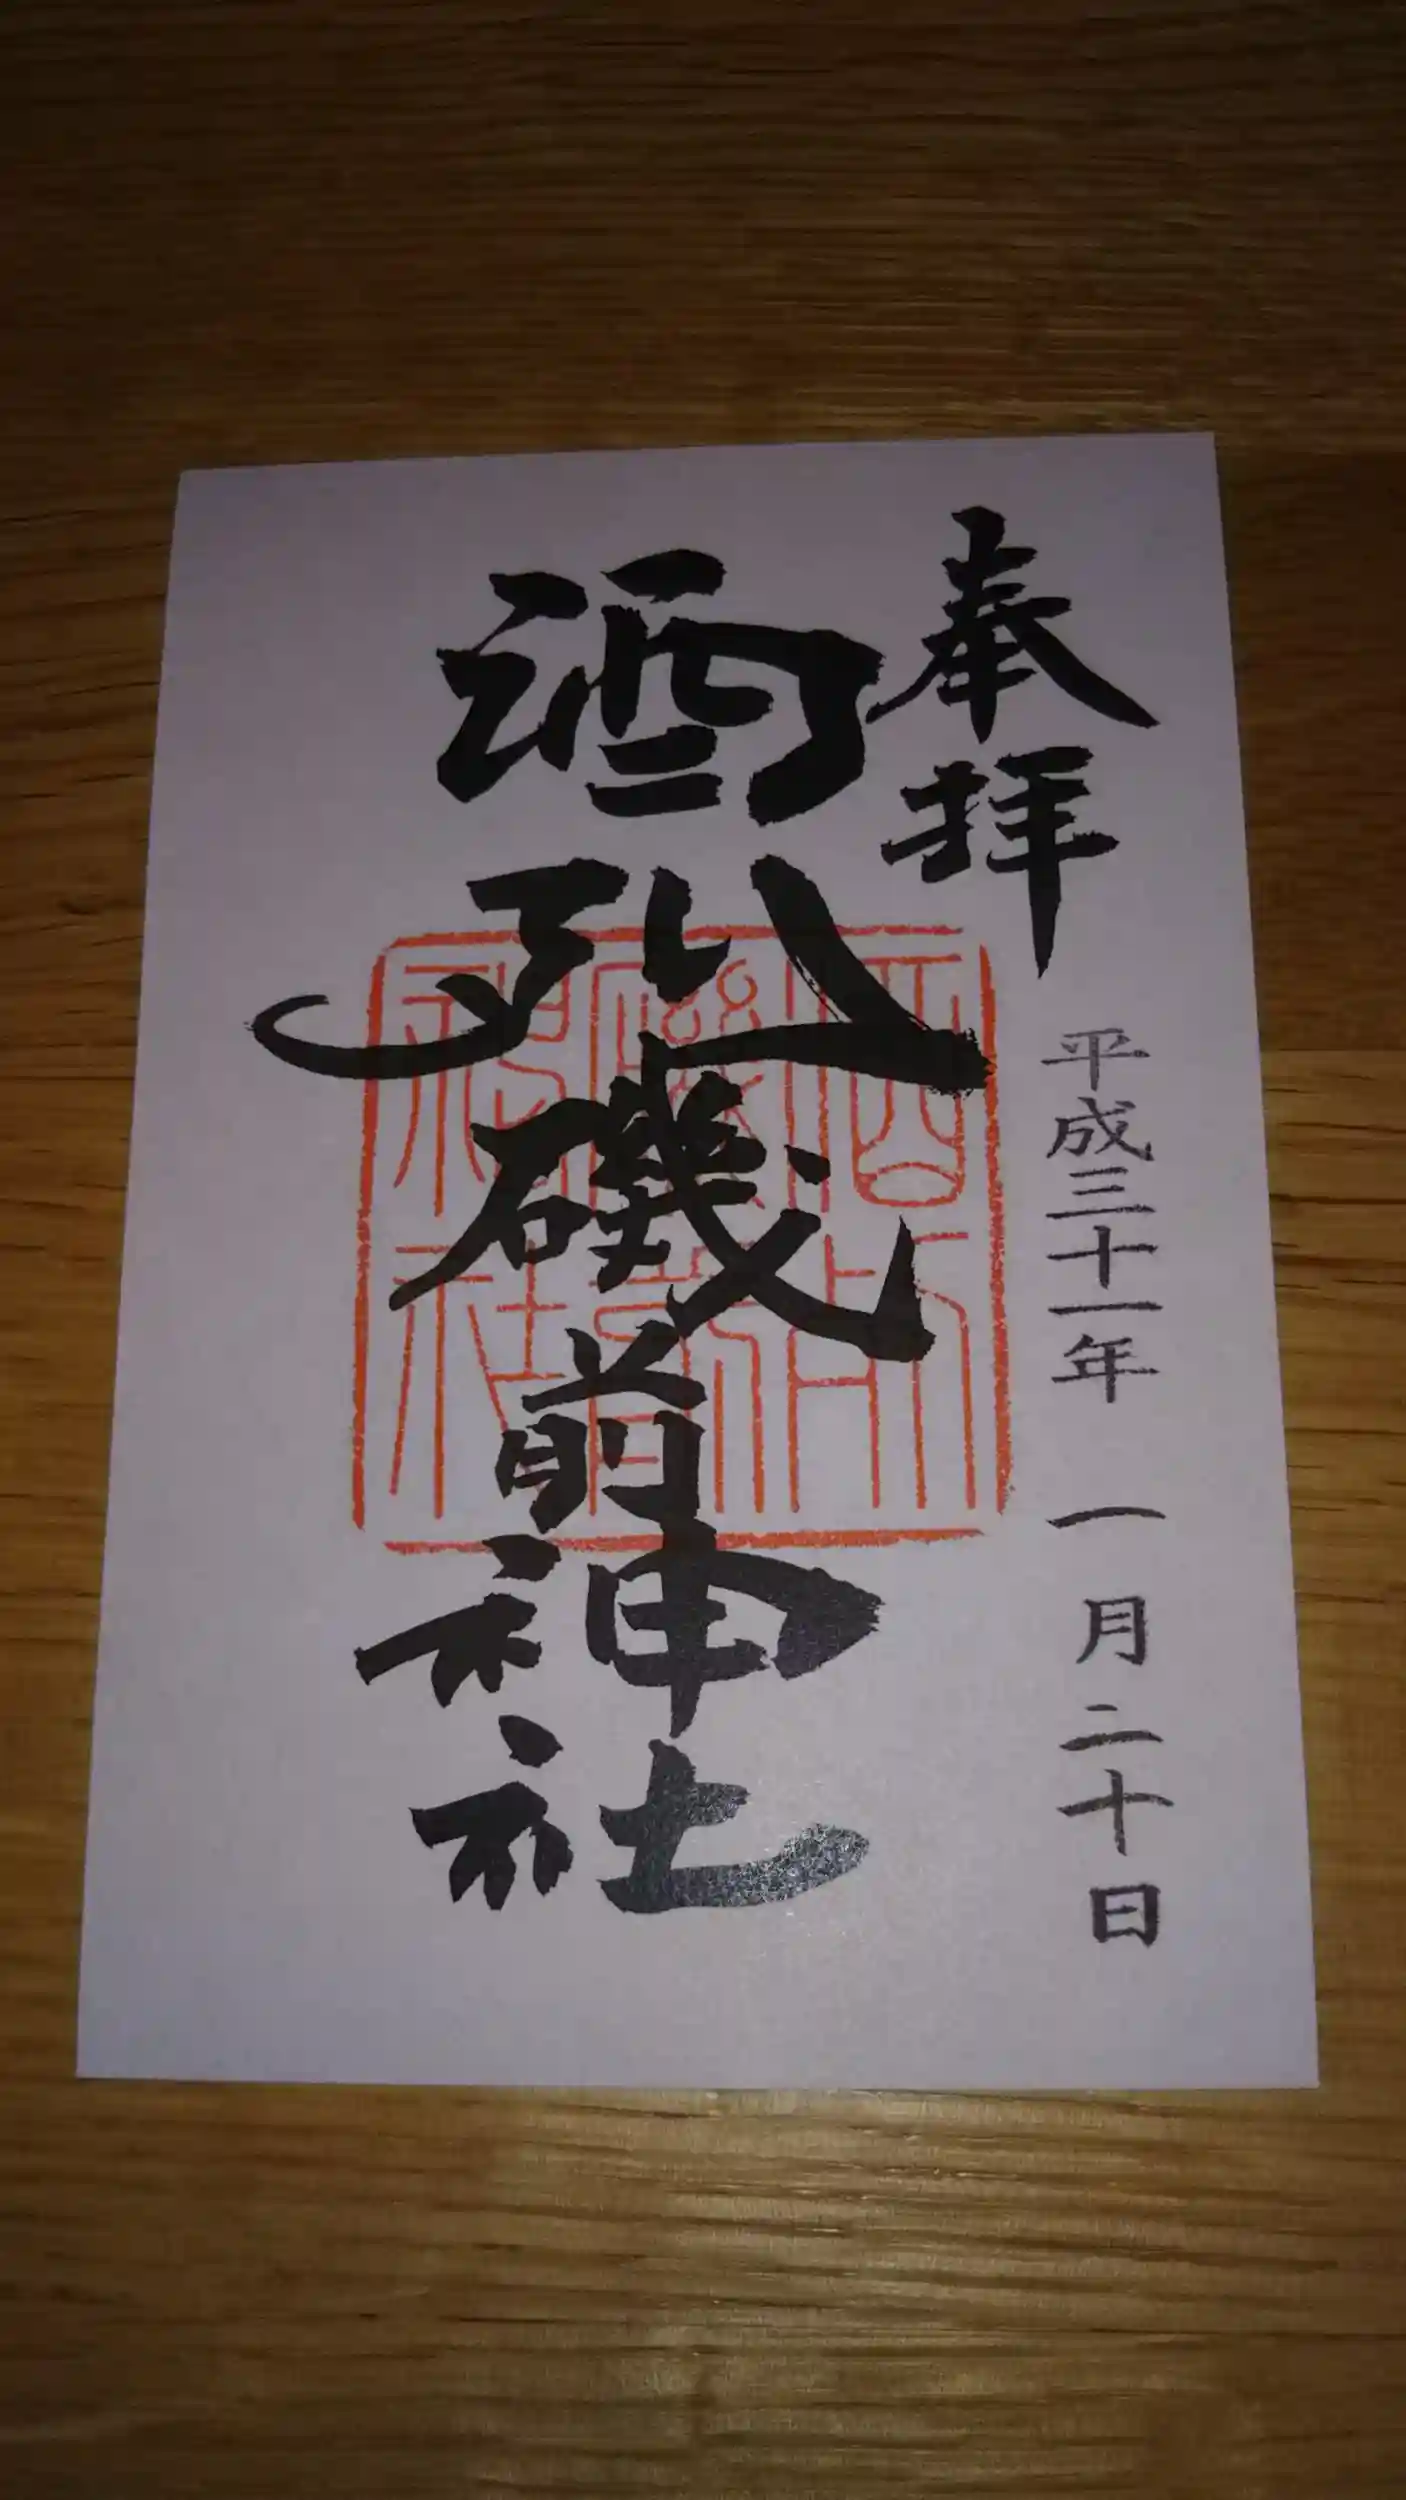 奉拝
平成三十一年 一月二十日
酒列磯前神社
酒列
磯前
神社